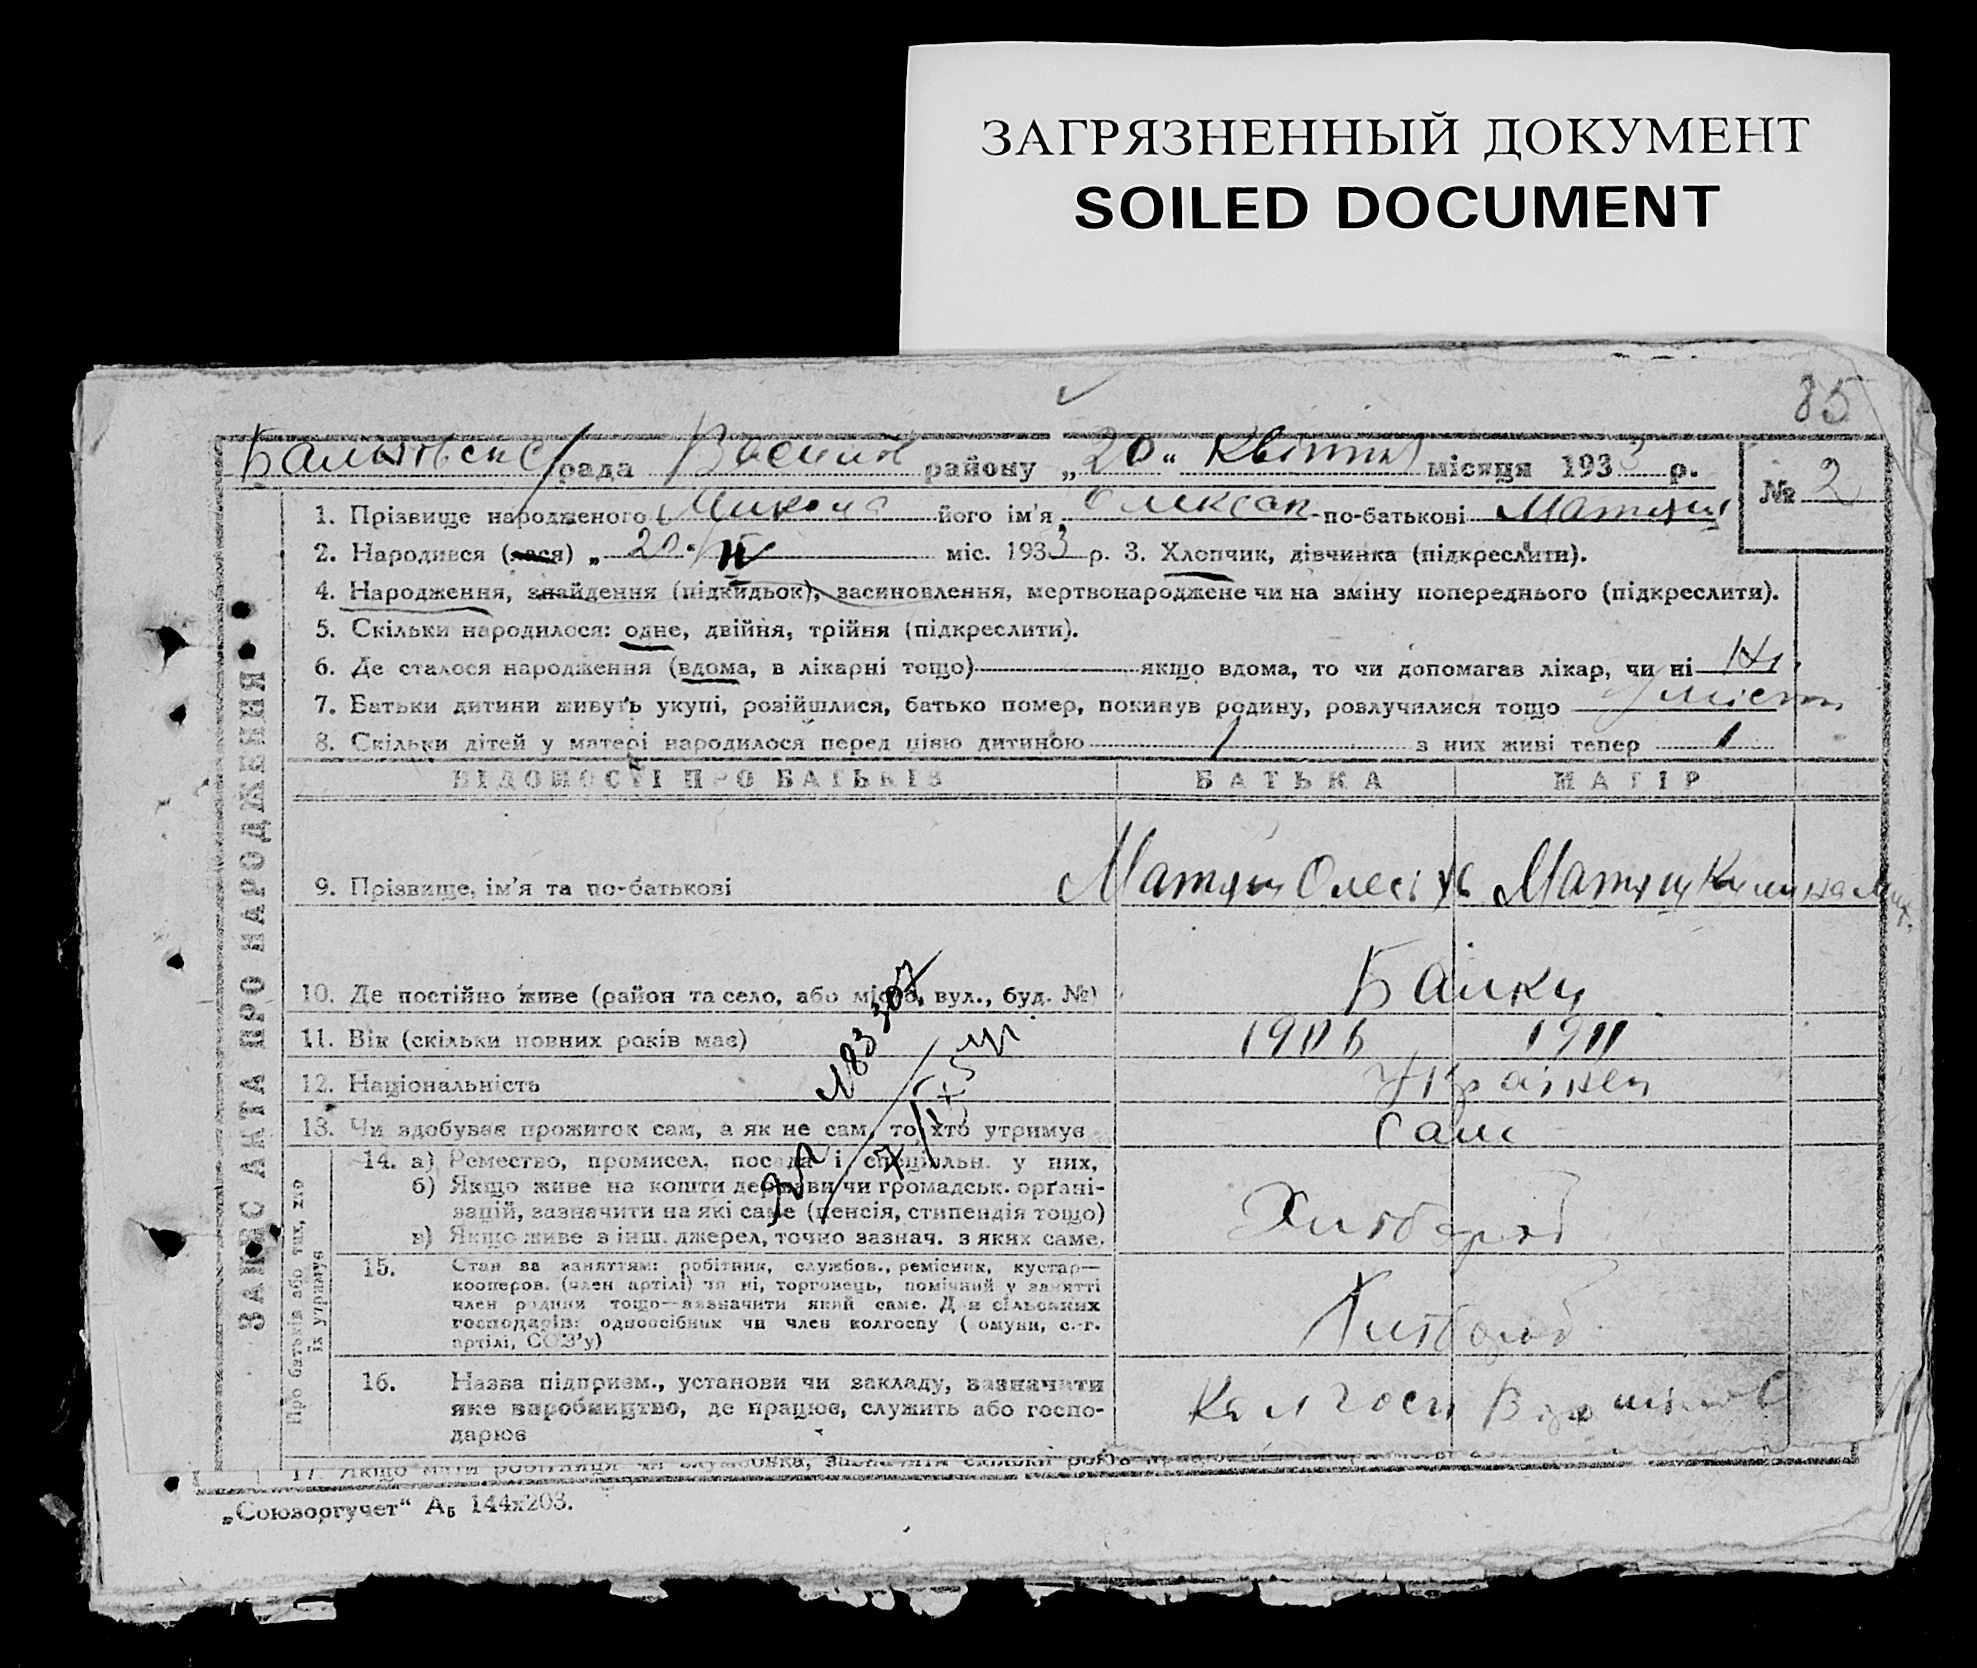 ЗАГРЯЗНЕННЫЙ ДОКУМЕНТ
SOILED DOCUMENT
85
рада району „20“ Квітня місяця 1933 р.
№ 2
1. Прізвище народженого Микола його ім'я Олексан- по-батькові
2. Народився (лася) „20“ IV міс. 1933 р. 3. Хлопчик, дівчинка (підкреслити).
4. Народження, знайдення (підкидьок), засиновлення, мертвонароджене чи на зміну попереднього (підкреслити).
5. Скільки народилося: одне, двійня, трійня (підкреслити).
6. Де сталося народження (вдома, в лікарні тощо) якщо вдома, то чи допомагав лікар, чи ні Ні
7. Батьки дитини живуть укупі, розійшлися, батько помер, покинув родину, розлучилися тощо
8. Скільки дітей у матері народилося перед цією дитиною 1 з них живі тепер 1
ЗАПИС АКТА ПРО НАРОДЖЕННЯ
ВІДОМОСТІ ПРО БАТЬКІВ БАТЬКА МАТІР
9. Прізвище, ім'я та по-батькові
10. Де постійно живе (район та село, або місто, вул., буд. №) Балки
11. Вік (скільки повних років має) 1906 1911
12. Національність Українец
13. Чи здобуває прожиток сам, а як не сам, то хто утримує Сам
Про батьків або тих, хто їх утримує
14. а) Ремество, промисел, посада і спеціальн. у них,
б) Якщо живе на кошти держави чи громадськ. органі-
зацій, зазначити на які саме (пенсія, стипендія тощо)
в) Якщо живе з інш. джерел, точно зазнач. з яких саме.
Хлібороб
15. Стан за заняттям: робітник, службов., ремісник, кустар—
кооперов. (член артілі) чи ні, торговець, помічний у занятті
член родини тощо—зазначити який саме. Для сільських
господарів: одноосібник чи член колгоспу (комуни, с.-г.
артілі, СОЗ'у)
Хлібороб
16. Назва підприєм., установи чи закладу, зазначити
яке виробництво, де працює, служить або госпо-
дарює
Колгосп
17. Якщо мати робітниця чи службовка, зазначити скільки років
„Союзоргучет“ А₅ 144х203.